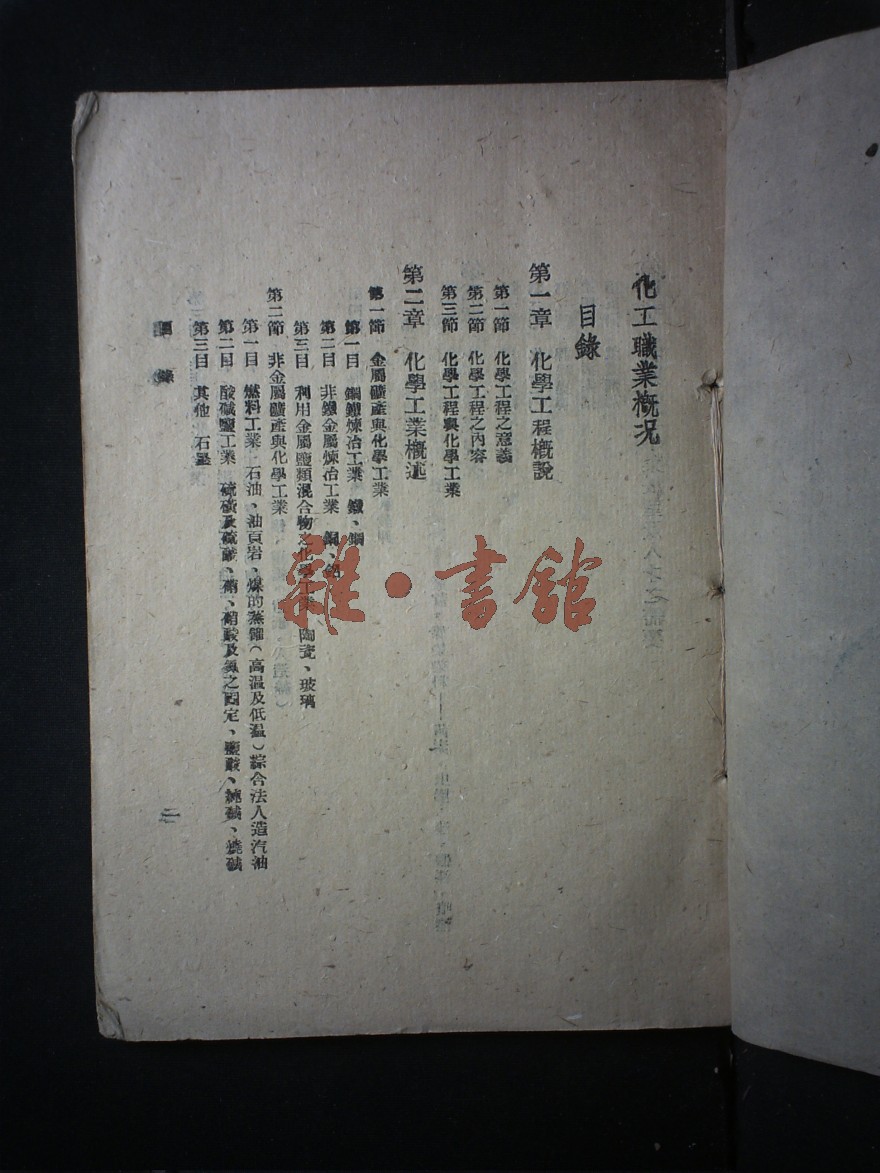 化工職業概況
目錄
第一章 化學工程概說
第一節 化學工程之意義
第二節 化學工程之內容
第三節 化學工程與化學工業
第二章 化學工業概述
第一節 金屬礦產與化學工業
第一目 鋼鐵煉冶工業 鐵、鋼
第二目 非鐵金屬煉冶工業 銅、鋁
第三目 利用金屬鹽類混合物之化學工業 陶瓷、玻璃
第二節 非金屬礦產與化學工業
第一目 燃料工業 石油、油頁岩、煤的蒸餾(高温及低温)綜合法人造汽油
第二目 酸碱鹽工業 硫磺及硫酸、硝、硝酸及氮之固定、鹽酸、純碱、燒碱
第三目 其他 石墨
目錄
雜·書館